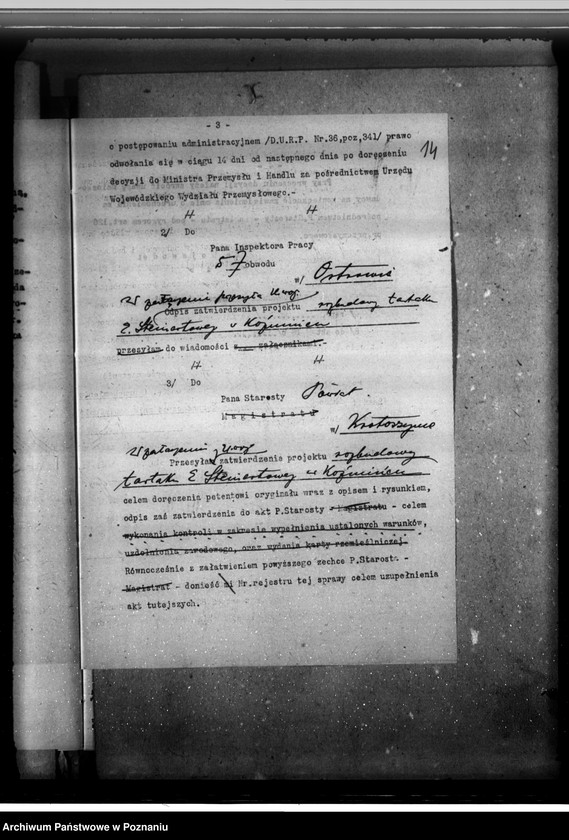 - 3 -
14
o postępowaniu administracyjnem /D.U.R.P. Nr.36,poz,341/ prawo
odwołania się w ciągu 14 dni od następnego dnia po doręczeniu
decyzji do Ministra Przemysłu i Handlu za pośrednictwem Urzędu
Wojewódzkiego Wydziału Przemysłowego.-
2/ Do
Pana Inspektora Pracy
57 obwodu
w/ Ostrowie
W załączeniu przesyła Urząd
odpis zatwierdzenia projektu rozbudowy tartaku
E. w Koźminie
przesyłam do wiadomości z załącznikami.-
3/ Do
Pana Starosty Powiat.
Magistratu
w/ Krotoszynie
W załączeniu
Przesyłam zatwierdzenie projektu rozbudowy
tartaku E w Koźminie
celem doręczenia petentowi oryginału wraz z opisem i rysunkiem,
odpis zaś zatwierdzenia do akt P.Starosty - Magistratu - celem
wykonania kontroli w zakresie wypełnienia ustalonych warunków,
uzdolnienia zawodowego, oraz wydania karty rzemieślniczej.
Równocześnie z załatwieniem powyższego zechce P.Starosta -
Magistrat - donieść mi Nr.rejestru tej sprawy celem uzupełnienia
akt tutejszych.
Archiwum Państwowe w Poznaniu